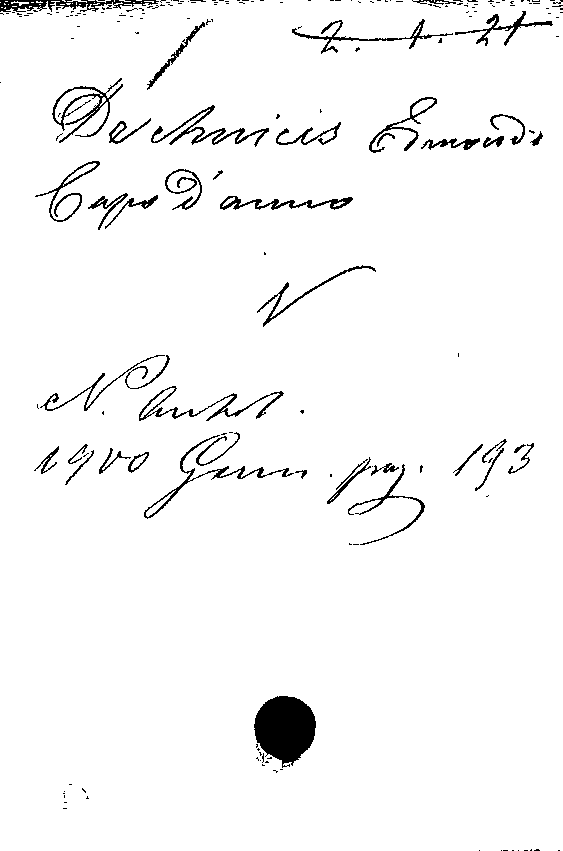 2. 1. 21
De Amicis Edmondo
Capo D'anno
V
N. Antol.
1900 Genn. pag. 193